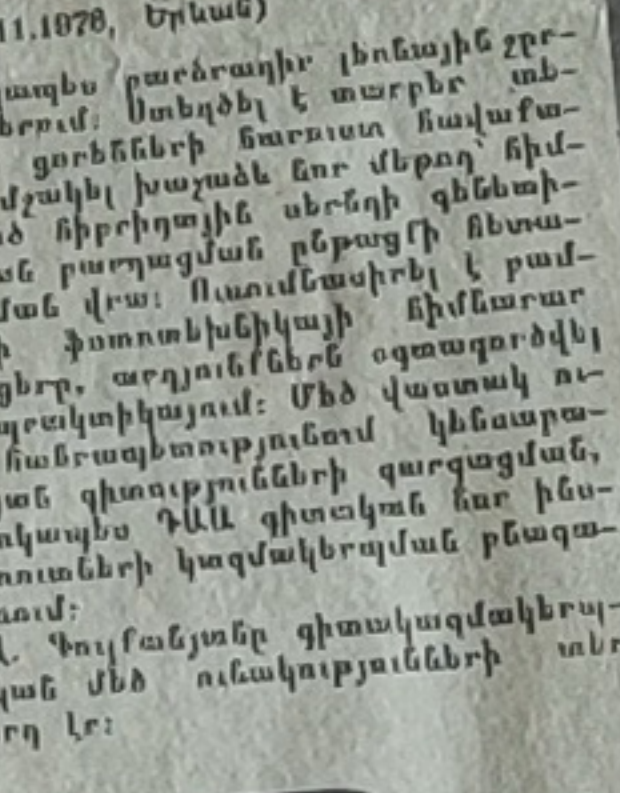 11.1978, Երևան)
պես բարձրադիր լեռնային շըր-
երում։ Ստեղծել է տարբեր տե-
ցորենների հարուստ հավաքա-
մշակել խաչաձև նոր մեթոդ՝ հիմ-
ծ հիբրիդային սերնդի գենետի-
ան բարդացման ընթացքի հետա-
ման վրա։ Ուսումնասիրել է բամ-
ի ֆոտոտեխնիկայի հիմնարար
ցերը, արդյունքներն օգտագործվել
պրակտիկայում։ Մեծ վաստակ ու-
հանրապետությունում կենսաբա-
կան գիտությունների զարգացման,
ակապես ԳԱԱ գիտական նոր ինս-
տուտների կազմակերպման բնագա-
առում։
Լ. Գուլքանյանը գիտակազմակերպ-
կան մեծ ունակությունների տեր
րդ էր։